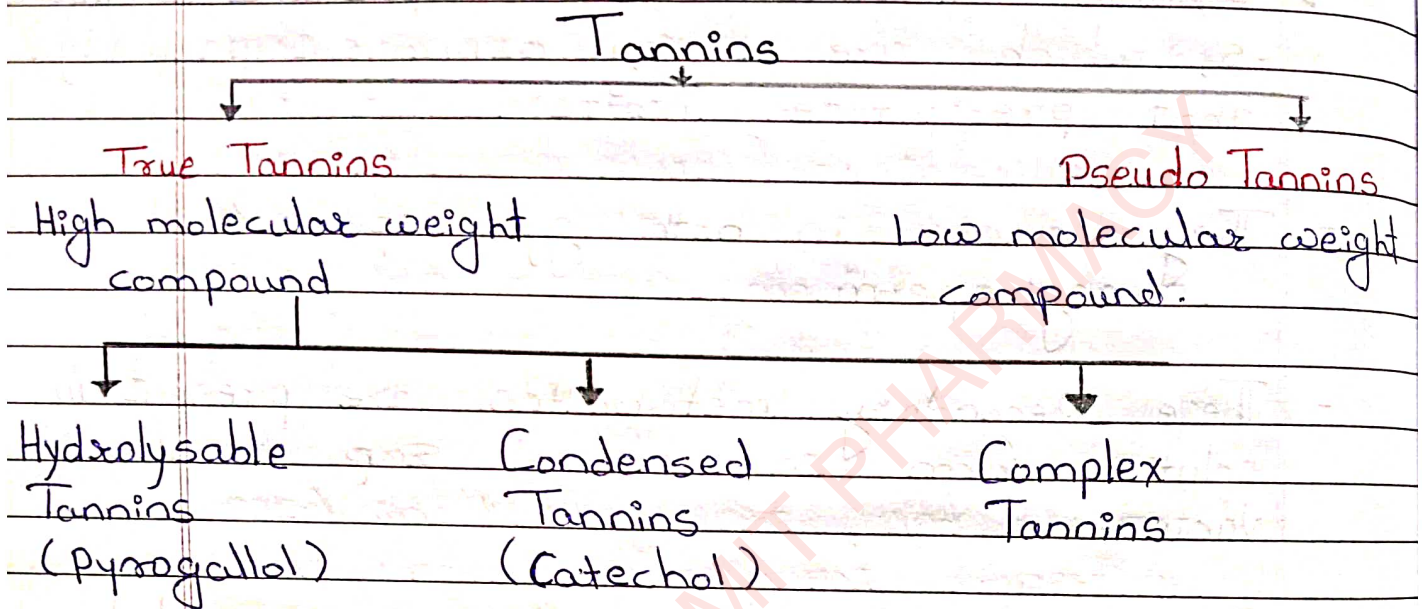 Tannins
True Tannins
Pseudo Tannins
High molecular weight
compound
Low molecular weight
compound.
Hydrolysable
Tannins
(Pyrogallol)
Condensed
Tannins
(Catechol)
Complex
Tannins
MIT PHARMACY